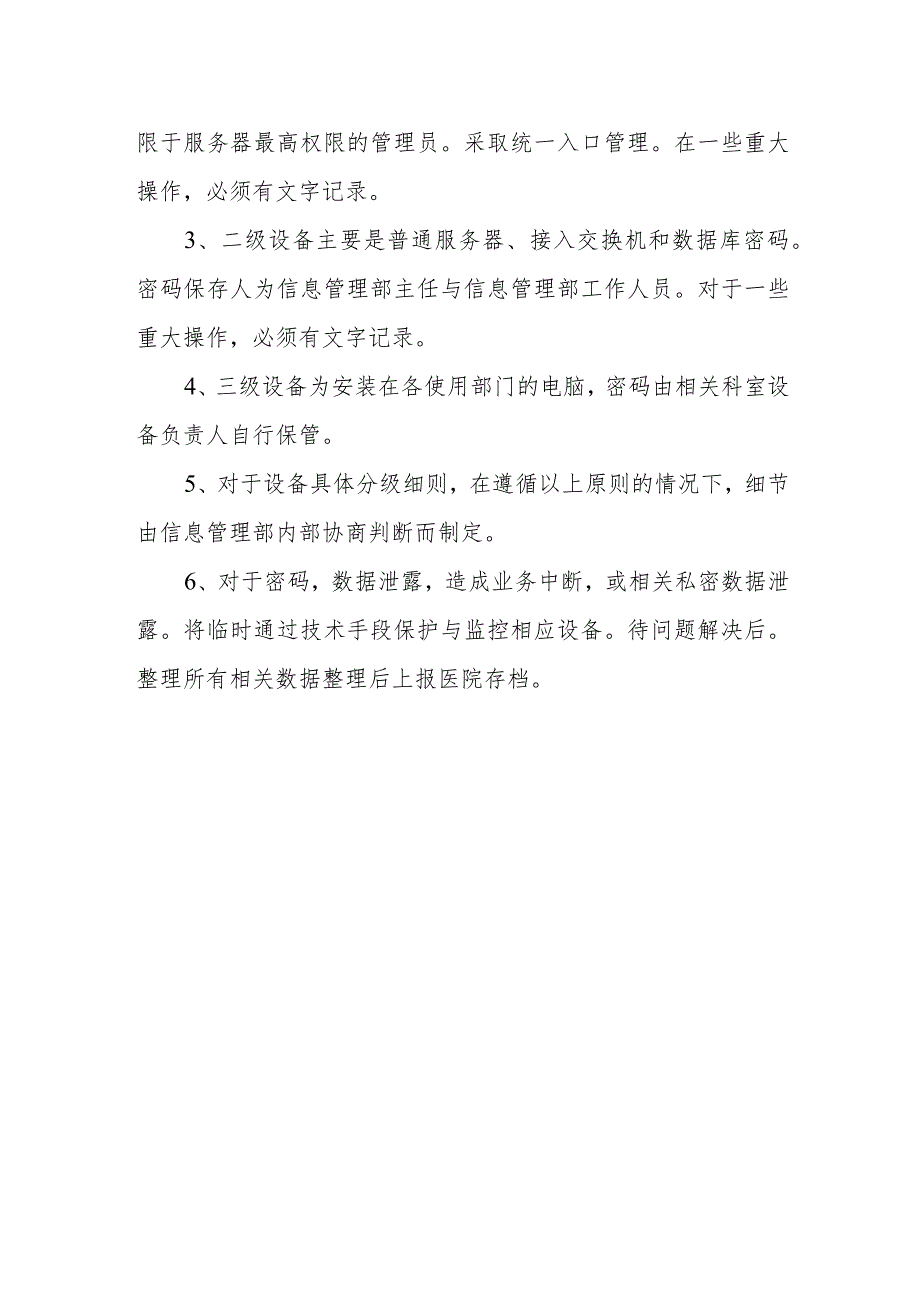 限于服务器最高权限的管理员。采取统一入口管理。在一些重大
操作，必须有文字记录。
3、二级设备主要是普通服务器、接入交换机和数据库密码。
密码保存人为信息管理部主任与信息管理部工作人员。对于一些
重大操作，必须有文字记录。
4、三级设备为安装在各使用部门的电脑，密码由相关科室设
备负责人自行保管。
5、对于设备具体分级细则，在遵循以上原则的情况下，细节
由信息管理部内部协商判断而制定。
6、对于密码，数据泄露，造成业务中断，或相关私密数据泄
露。将临时通过技术手段保护与监控相应设备。待问题解决后。
整理所有相关数据整理后上报医院存档。